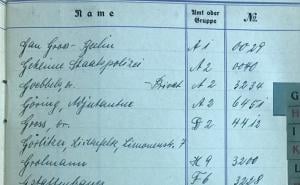 Name Amt oder Gruppe №
Gau Gross-Berlin A1 0029
Geheime Staatspolizei A2 0040
Goebbels, Dr. Privat A2 3234
Göring, Adjutantur A2 6451
Gross, Dr. D2 4412
Görlitzer, Lichterfelde, Limonenstr. 7
Grohmann H9 3200
F6 3228
G
H
I
K